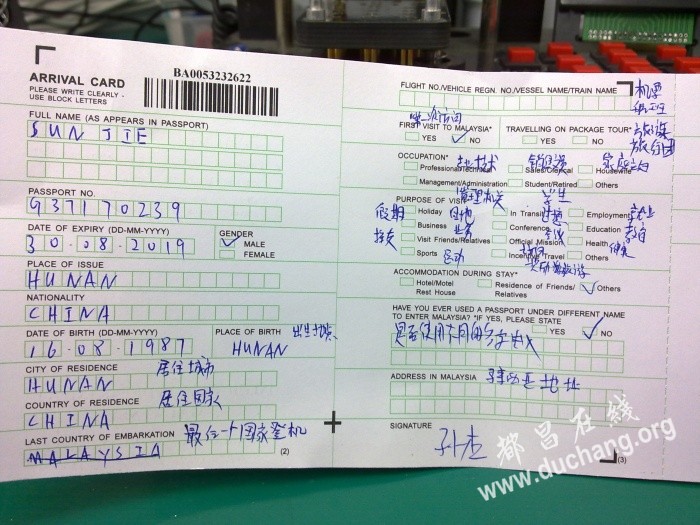 BA0053232622
ARRIVAL CARD
PLEASE WRITE CLEARLY -
USE BLOCK LETTERS
FULL NAME (AS APPEARS IN PASSPORT)
SUN JIE
PASSPORT NO.
G37170239
DATE OF EXPIRY (DD-MM-YYYY)
30-08-2019
GENDER
MALE
FEMALE
PLACE OF ISSUE
HUNAN
NATIONALITY
CHINA
DATE OF BIRTH (DD-MM-YYYY)
16-08-1987
PLACE OF BIRTH 出生地点
HUNAN
CITY OF RESIDENCE 居住城市
HUNAN
COUNTRY OF RESIDENCE 居住国家
CHINA
LAST COUNTRY OF EMBARKATION 最后一个国家登机
MALAYSIA
(2)
FLIGHT NO./VEHICLE REGN. NO./VESSEL NAME/TRAIN NAME 机票
第一次访问
FIRST VISIT TO MALAYSIA*
YES NO
TRAVELLING ON PACKAGE TOUR* 旅游
YES NO 旅行团
OCCUPATION*
Professional/Technical
Sales/Clerical
Housewife
Management/Administration
Student/Retired
Others
管理机关 学生
PURPOSE OF VISIT
假期 Holiday
In Transit
Employment 就业
Business 业务
Conference 会议
Education 教育
Visit Friends/Relatives
Official Mission
Health
Sports 运动
Incentive Travel
Others
ACCOMMODATION DURING STAY*
Hotel/Motel
Rest House
Residence of Friends/
Relatives
Others
HAVE YOU EVER USED A PASSPORT UNDER DIFFERENT NAME
TO ENTER MALAYSIA? *IF YES, PLEASE STATE
YES NO
是否使用不同的名字
ADDRESS IN MALAYSIA 马来西亚地址
SIGNATURE
孙杰
(3)
都昌在线
www.duchang.org